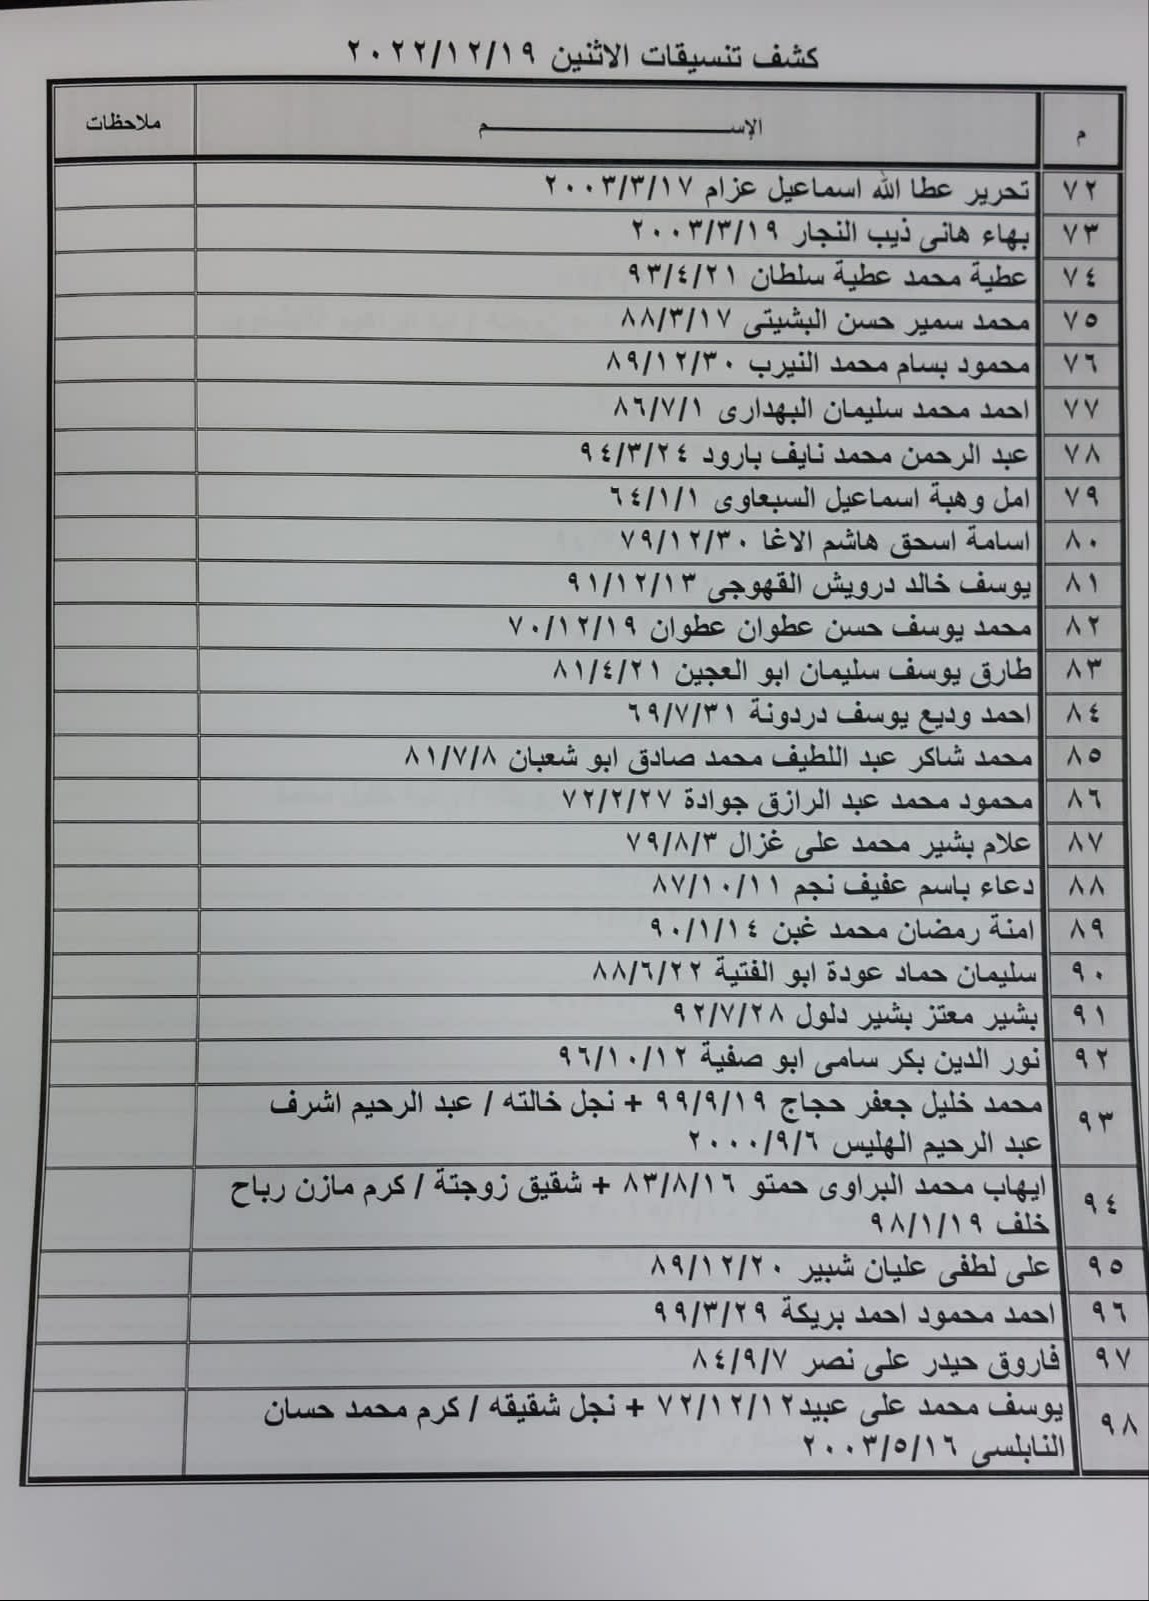 كشف تنسيقات الاثنين ٢٠٢٢/١٢/١٩
م الإســـــــــــــم ملاحظات
٧٢ تحرير عطا الله اسماعيل عزام ٢٠٠٣/٣/١٧
٧٣ بهاء هانى ذيب النجار ٢٠٠٣/٣/١٩
٧٤ عطية محمد عطية سلطان ٩٣/٤/٢١
٧٥ محمد سمير حسن البشيتى ٨٨/٣/١٧
٧٦ محمود بسام محمد النيرب ٨٩/١٢/٣٠
٧٧ احمد محمد سليمان البهدارى ٨٦/٧/١
٧٨ عبد الرحمن محمد نايف بارود ٩٤/٣/٢٤
٧٩ امل وهبة اسماعيل السبعاوى ٦٤/١/١
٨٠ اسامة اسحق هاشم الاغا ٧٩/١٢/٣٠
٨١ يوسف خالد درويش القهوجى ٩١/١٢/١٣
٨٢ محمد يوسف حسن عطوان عطوان ٧٠/١٢/١٩
٨٣ طارق يوسف سليمان ابو العجين ٨١/٤/٢١
٨٤ احمد وديع يوسف دردونة ٦٩/٧/٣١
٨٥ محمد شاكر عبد اللطيف محمد صادق ابو شعبان ٨١/٧/٨
٨٦ محمود محمد عبد الرازق جوادة ٧٢/٢/٢٧
٨٧ علام بشير محمد على غزال ٧٩/٨/٣
٨٨ دعاء باسم عفيف نجم ٨٧/١٠/١١
٨٩ امنة رمضان محمد غبن ٩٠/١/١٤
٩٠ سليمان حماد عودة ابو الفتية ٨٨/٦/٢٢
٩١ بشير معتز بشير دلول ٩٢/٧/٢٨
٩٢ نور الدين بكر سامى ابو صفية ٩٦/١٠/١٢
٩٣ محمد خليل جعفر حجاج ٩٩/٩/١٩ + نجل خالته / عبد الرحيم اشرف
عبد الرحيم الهليس ٢٠٠٠/٩/٦
٩٤ ايهاب محمد البراوى حمتو ٨٣/٨/١٦ + شقيق زوجتة / كرم مازن رباح
خلف ٩٨/١/١٩
٩٥ على لطفى عليان شبير ٨٩/١٢/٢٠
٩٦ احمد محمود احمد بريكة ٩٩/٣/٢٩
٩٧ فاروق حيدر على نصر ٨٤/٩/٧
٩٨ يوسف محمد على عبيد٧٢/١٢/١٢ + نجل شقيقه / كرم محمد حسان
النابلسى ٢٠٠٣/٥/١٦